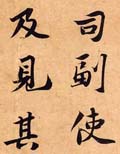 司副使
及見其